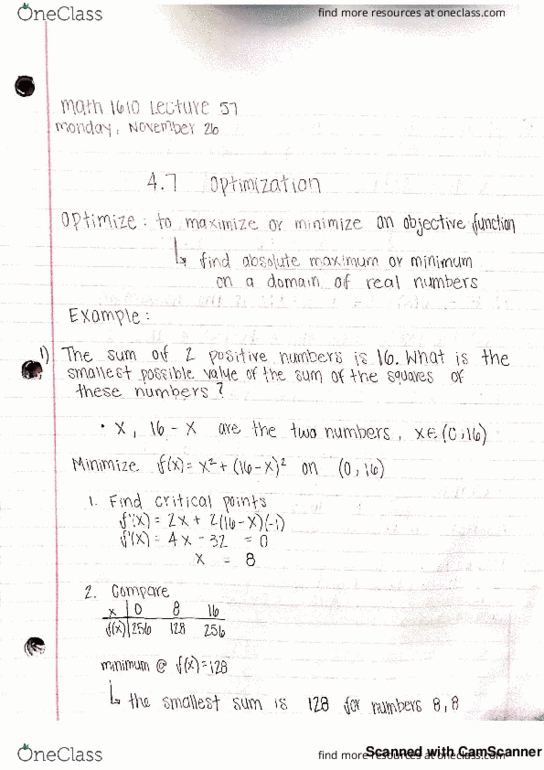 OneClass
find more resources at oneclass.com
Math 1610 Lecture 37
Monday, November 26
4.7 Optimization
Optimize: to maximize or minimize an objective function
↳ find absolute maximum or minimum
on a domain of real numbers
Example:
1) The sum of 2 positive numbers is 16. What is the
smallest possible value of the sum of the squares of
these numbers?
• x, 16-x are the two numbers, x∈(0,16)
Minimize f(x) = x² + (16-x)² on (0,16)
1. Find critical points
f'(x) = 2x + 2(16-x)(-1)
f'(x) = 4x - 32 = 0
x = 8
2. Compare
x | 0 8 16
f(x) | 256 128 256
minimum @ f(x)=128
↳ the smallest sum is 128 for numbers 8,8
OneClass
find more resources at oneclass.com
Scanned with CamScanner